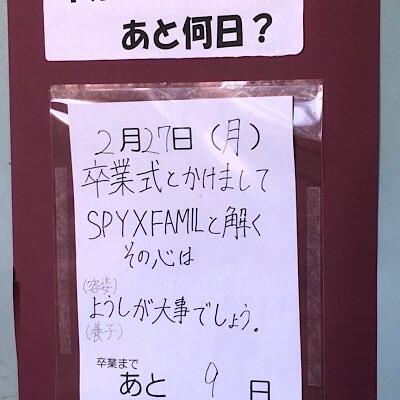 あと何日？
2月27日（月）
卒業式とかけまして
SPYXFAMILと解く
その心は
(容姿)
ようしが大事でしょう。
(養子)
卒業まで
あと 9 日